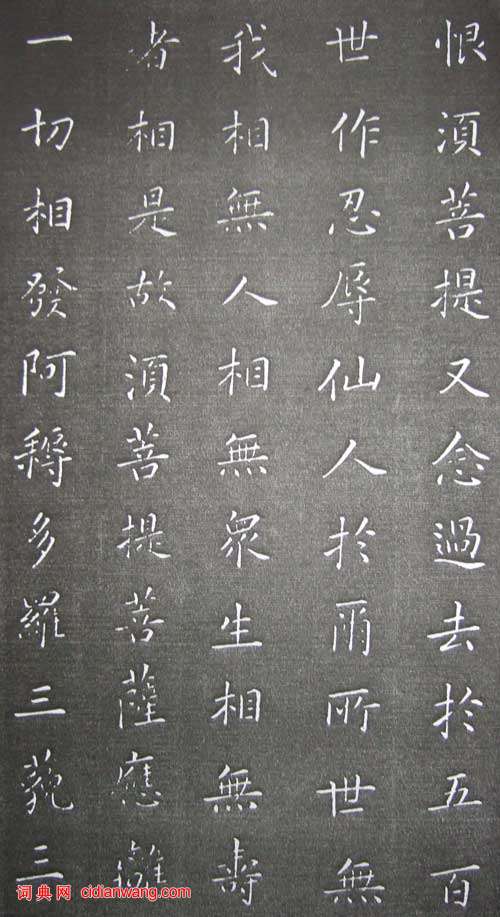 恨須菩提又念過去於五百
世作忍辱仙人於爾所世無
我相無人相無眾生相無壽
者相是故須菩提菩薩應離
一切相發阿耨多羅三藐三
词典网 cidianwang.com